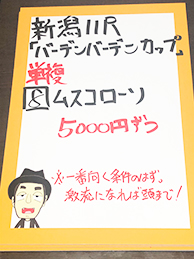 新潟11R
「バーデンバーデンカップ」
単複
⑧ムスコローソ
5000円ずつ
※一番向く条件のはず。
激流になれば頭まで!